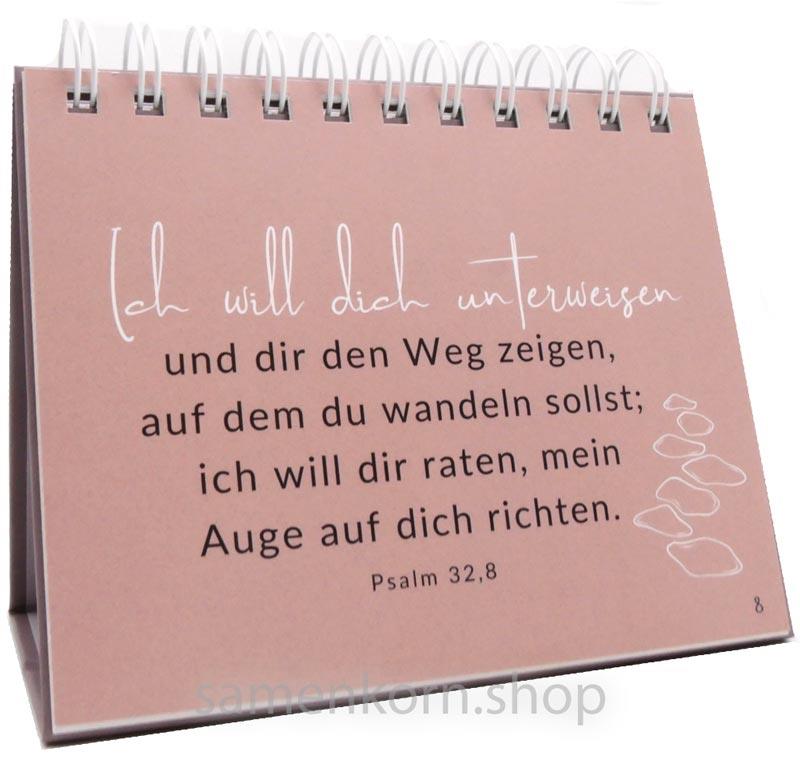 Ich will dich unterweisen
und dir den Weg zeigen,
auf dem du wandeln sollst;
ich will dir raten, mein
Auge auf dich richten.
Psalm 32,8
8
samenkorn.shop